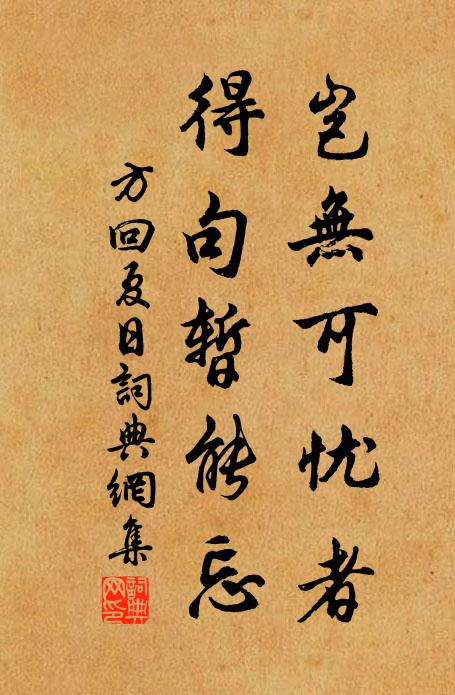 豈無可忧者
得句暫能忘
方回夏日詞典網集
詞典網印